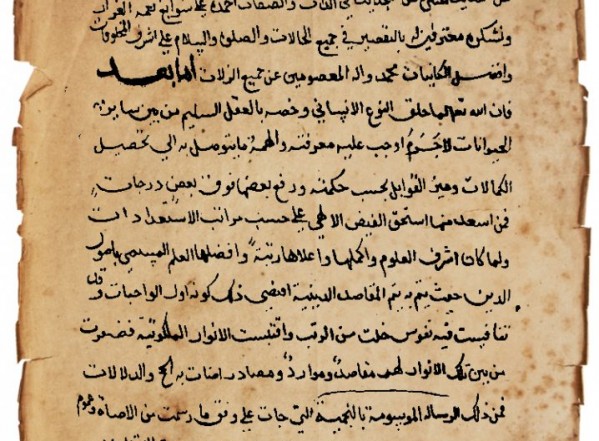 في الذات والصفات احمده على سوابغ نعمه الغزار
ونشكره معترفين له بالتقصير في جميع الحالات والصلوة والسلام على اشرف المخلوقات
وافضل الكاينات محمد واله المعصومين عن جميع الزلات اما بعد
فان الله تعالى لما خلق النوع الانساني وخصه بالعقل السليم من بين ساير
الحيوانات لا جرم اوجب عليه معرفته والهمه ما يتوصل به الى تحصيل
الكمالات وميز القوابل بحسب حكمته ورفع بعضها فوق بعض درجات
فمن اسعد منها استحق الفيض الالهي على حسب مراتب الاستعدادات
ولما كان اشرف العلوم واكملها واعلاها رتبة وافضلها العلم المسمى باصول
الدين حيث يتم به يتم المقاصد الدينية اقتضى ذلك كونه اول الواجبات
تنافست فيه نفوس خلت من الريب واقتبست الانوار الملكوتية فضوعت
من بين تلك الانوار لهم مقاصد وموارد ومصادر امنات به الحج والدلالات
فمن ذلك الرساله الموسومة بالنجمية التي جات على وفق ما رسمت من الاصالة